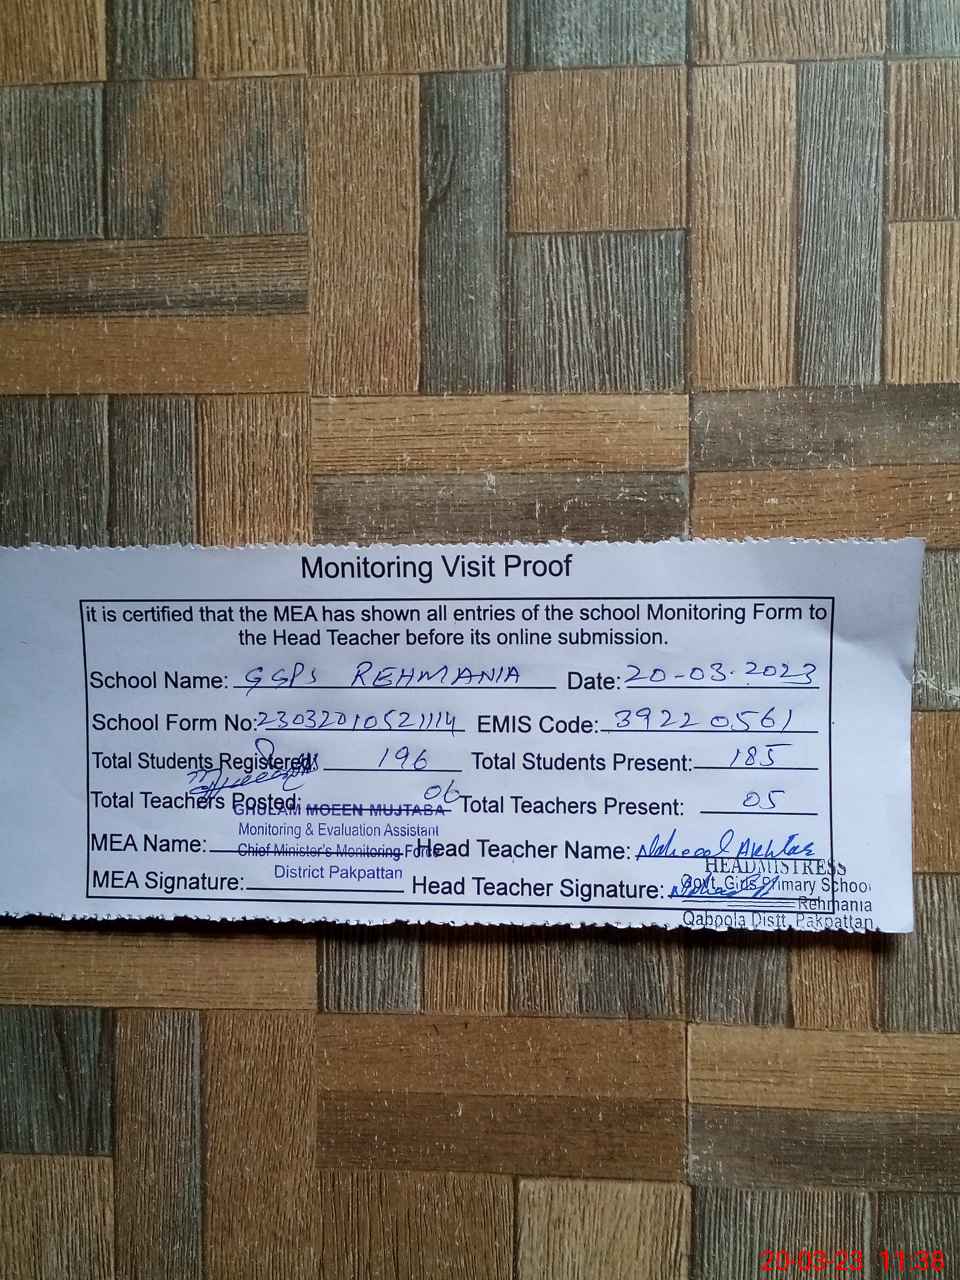 Monitoring Visit Proof
it is certified that the MEA has shown all entries of the school Monitoring Form to
the Head Teacher before its online submission.
School Name: GGPS REHMANIA Date: 20-03-2023
School Form No: 23032010521114 EMIS Code: 39220561
Total Students Registered: 196 Total Students Present: 185
Total Teachers Posted: 06 Total Teachers Present: 05
GHULAM MOEEN MUJTABA
Monitoring & Evaluation Assistant
MEA Name: Head Teacher Name: Akhtar
Chief Minister's Monitoring Force
District Pakpattan
MEA Signature: Head Teacher Signature:
HEADMISTRESS
Govt. Girls Primary School
Rehmania
Qaboola Distt. Pakpattan
20-03-23 11:38